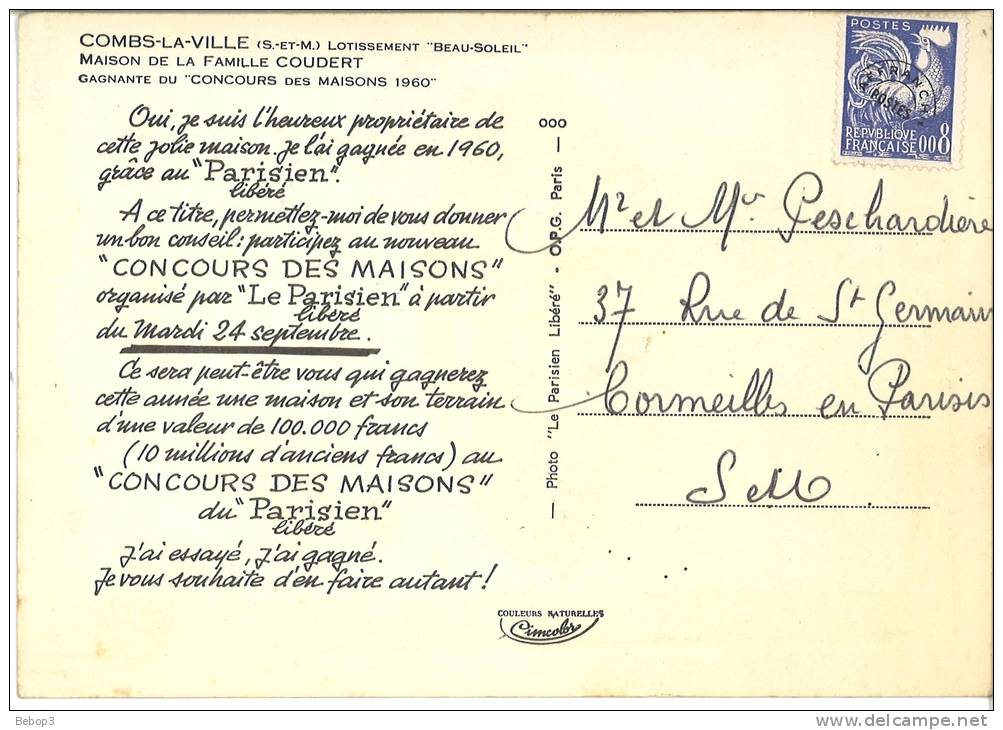 COMBS-LA-VILLE (S.-ET-M.) LOTISSEMENT "BEAU-SOLEIL"
MAISON DE LA FAMILLE COUDERT
GAGNANTE DU "CONCOURS DES MAISONS 1960"
Oui, je suis l'heureux propriétaire de
cette jolie maison. Je l'ai gagnée en 1960,
grâce au "Parisien".
libéré
A ce titre, permettez-moi de vous donner
un bon conseil : participez au nouveau
"CONCOURS DES MAISONS"
organisé par "Le Parisien" à partir
libéré
du Mardi 24 septembre.
Ce sera peut-être vous qui gagnerez
cette année une maison et son terrain
d'une valeur de 100.000 francs
(10 millions d'anciens francs) au
"CONCOURS DES MAISONS"
du "Parisien"
libéré
J'ai essayé, j'ai gagné.
Je vous souhaite d'en faire autant !
ooo
— Photo "Le Parisien Libéré" - O.P.G. Paris —
COULEURS NATURELLES
Cimcolor
POSTES
AFFRANCHts
POSTES
REPVBLIQUE
FRANÇAISE 0,08
Mr et Me Peschardière
37 Rue de St Germain
Cormeilles en Parisis
S et O
Bebop3
www.delcampe.net